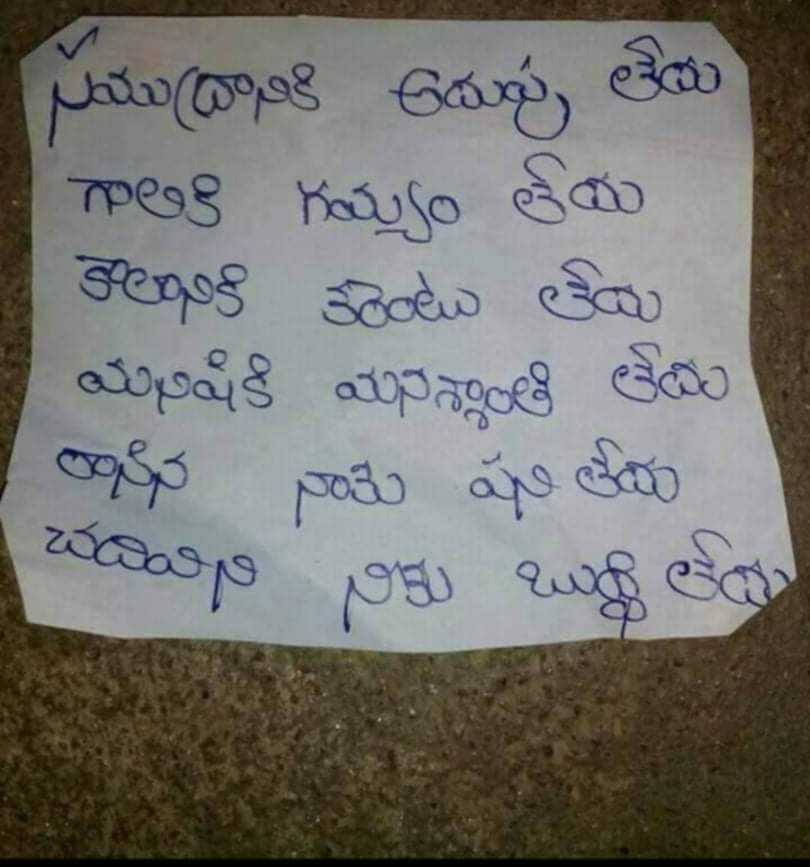 సముద్రానికి అదుపు లేదు
గాలికి గమ్యం లేదు
కాలానికి కరెంటు లేదు
మనిషికి మనశ్శాంతి లేదు
రాసిన నాకు పని లేదు
చదివిన నీకు బుద్ధి లేదు